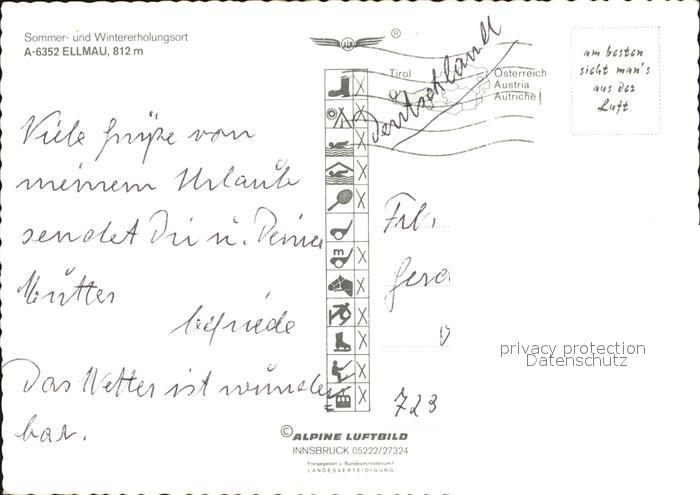 Sommer- und Wintererholungsort
A-6352 ELLMAU, 812 m
®
Tirol
Österreich
Austria
Autriche
Deutschland
am besten
sieht man's
aus der
Luft
Viele Grüße von
meinem Urlaub
sendet Dir u. Deiner
Mutter
Das Wetter ist wunder
bar.
Frl.
723
m
privacy protection
Datenschutz
© ALPINE LUFTBILD
INNSBRUCK 05222/27324
Freigegeben v. Bundesministerium f.
LANDESVERTEIDIGUNG